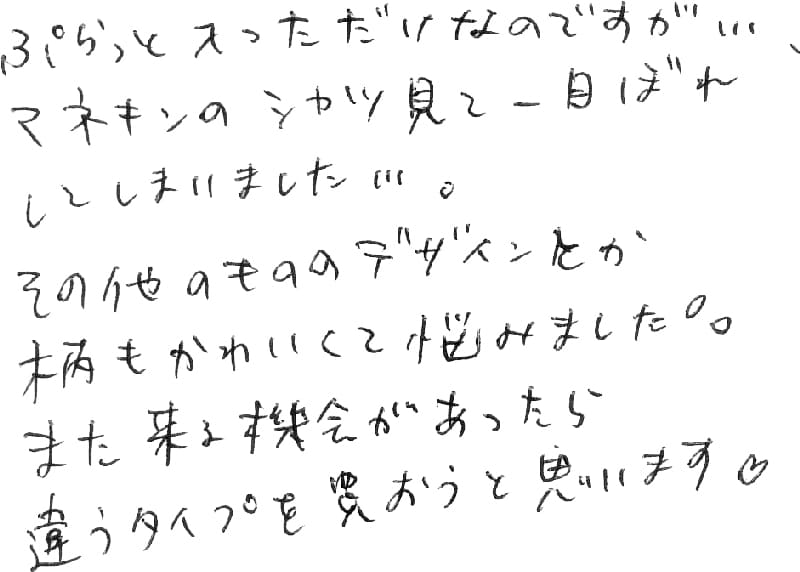 ぷらっと入っただけなのですが…、
マネキンのシャツ見て一目ぼれ
してしまいました…。
その他のもののデザインとか
柄もかわいくて悩みました。。
また来る機会があったら
違うタイプを買おうと思います♡